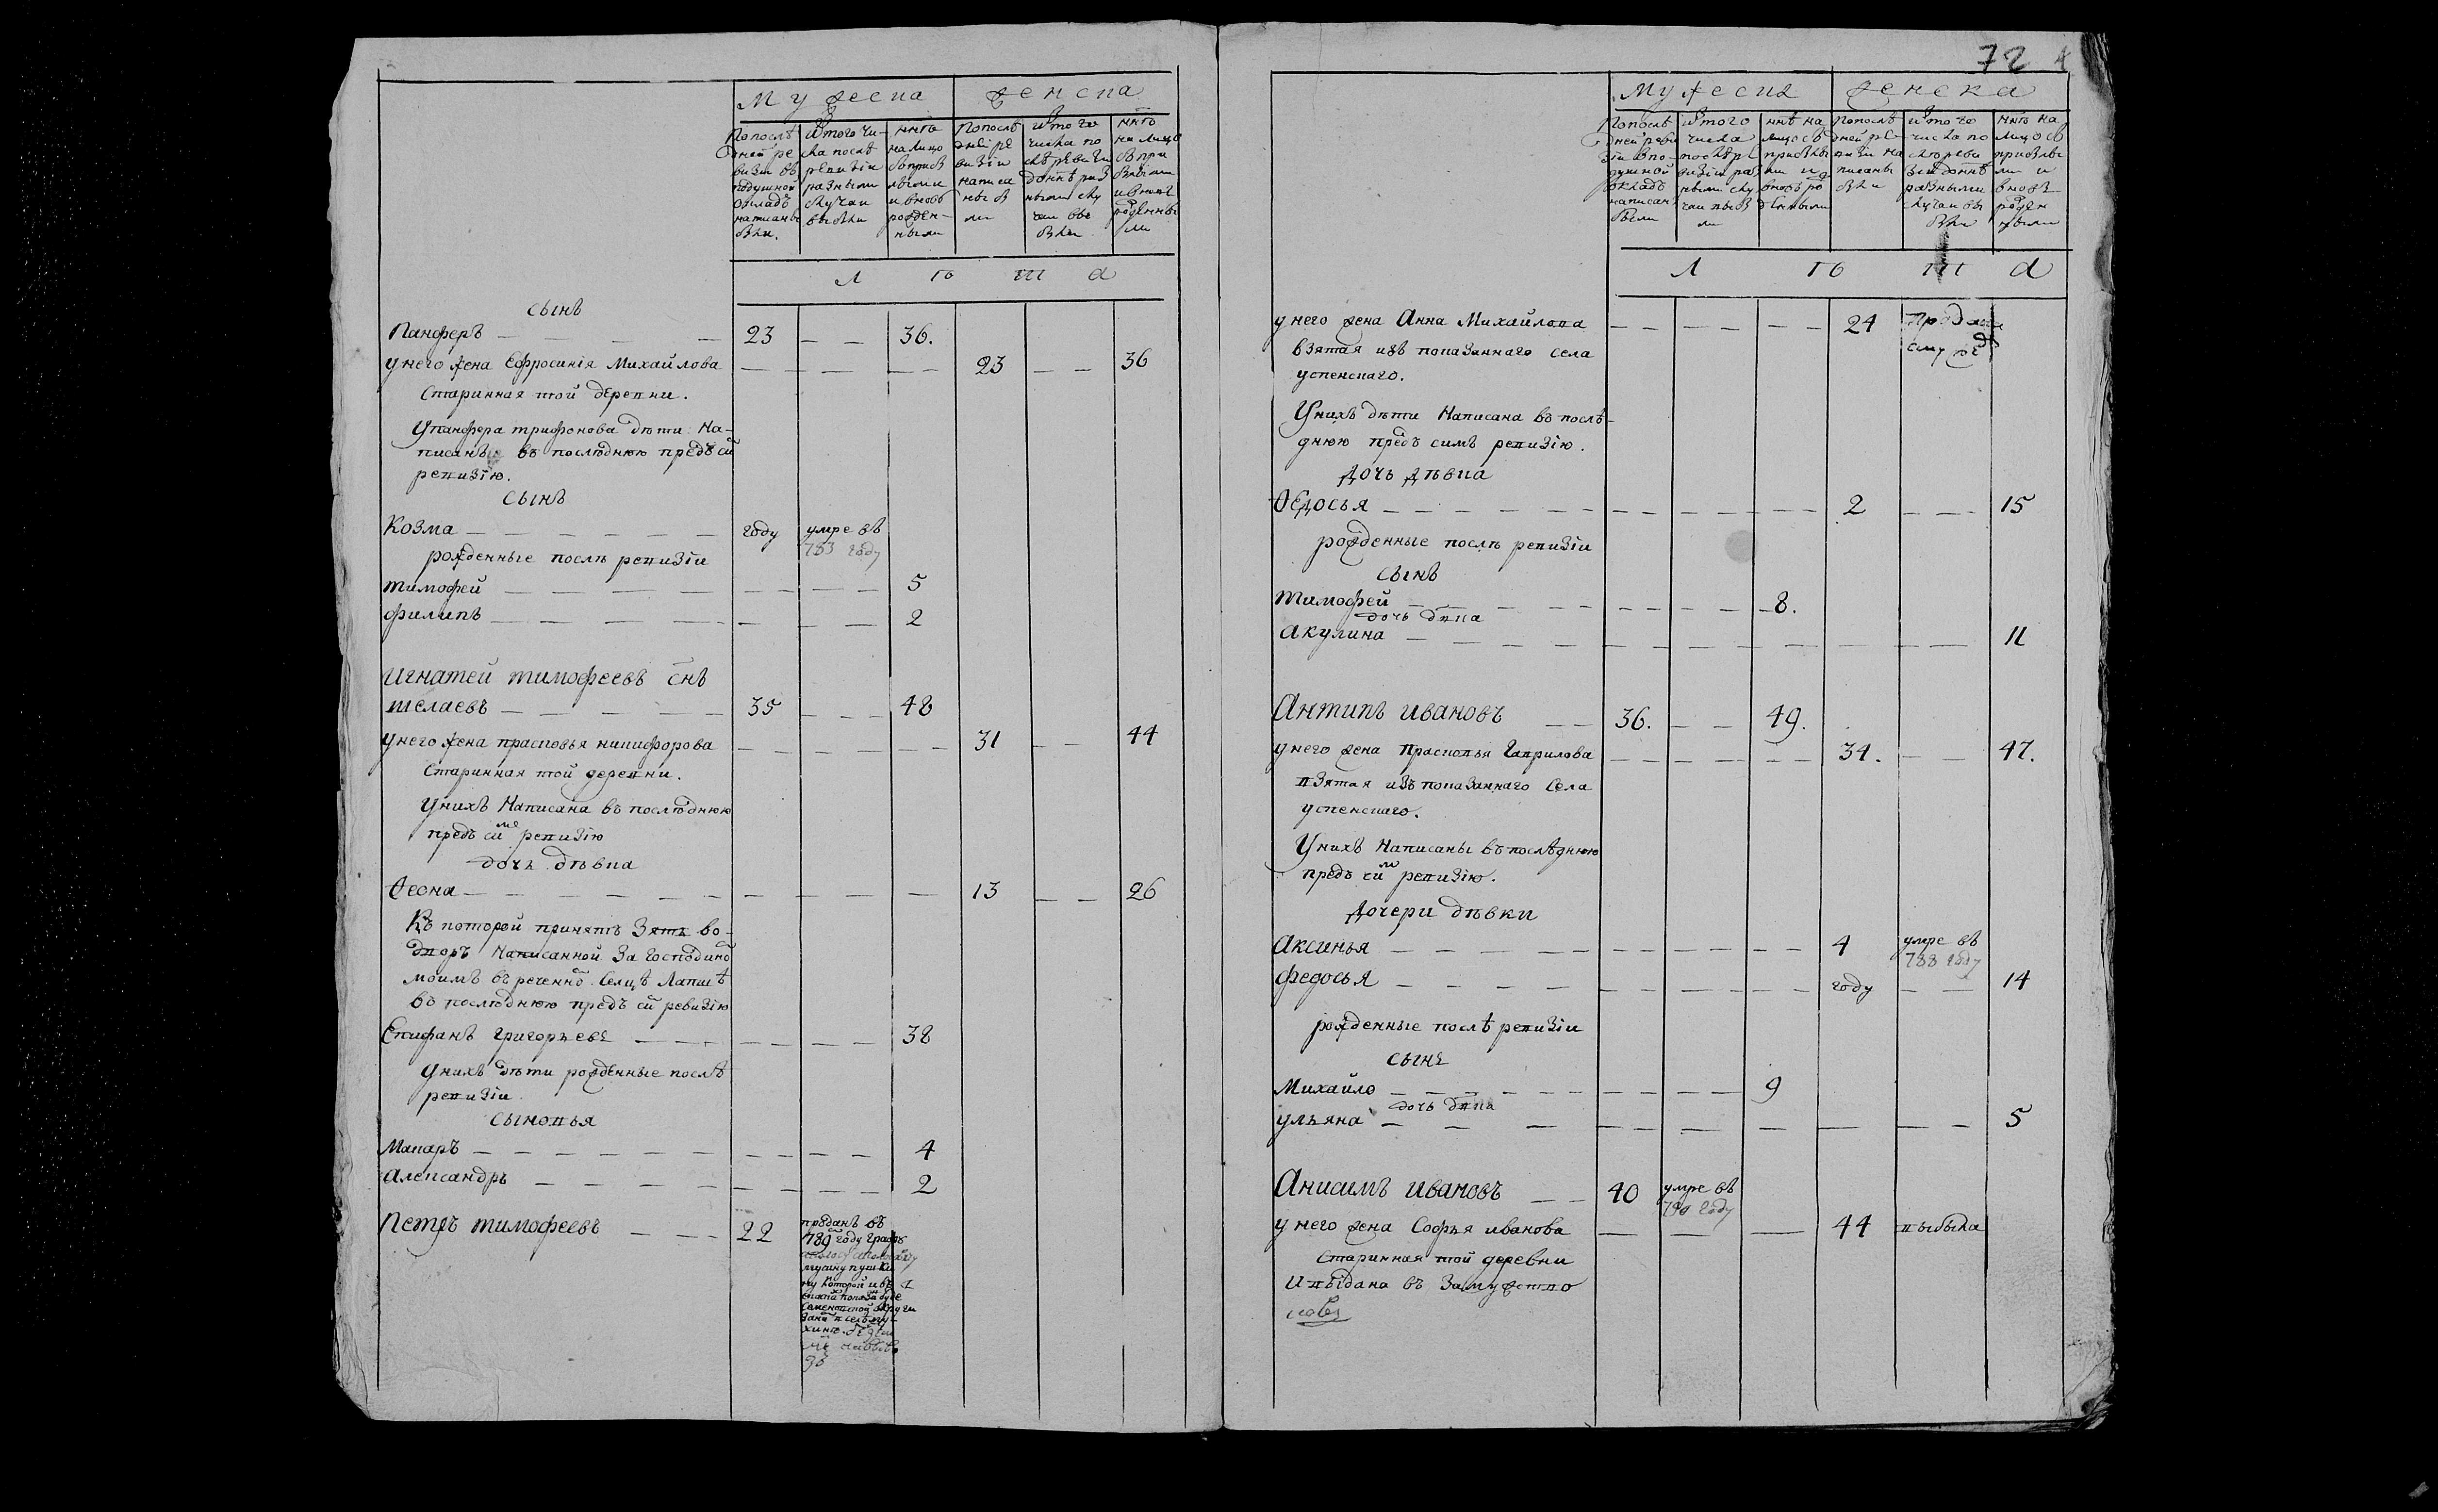 72
Мужеска женска
По послѣ
дней ре
визіи въ
подушной
окладъ
написаны
были.
Изъ того чи-
сла послѣ
ревизіи
разными
случаи
выбыли
ннѣ
на лицо
съ прибы
лыми
и вновь
рожден-
ными
По послѣ
дней ре
визіи
написа
ны бы
ли
Изъ того
числа по
слѣ ревизіи
разными слу
чаи вы
были
ннѣ
на лице
съ при
былыми
и вновь
рожденны
ми
л ѣ т а
сынъ
Панферъ 23 36.
у него жена Ефросинія Михайлова 23 36
Старинная той деревни.
У Панфера трифонова дѣти на-
писаны въ послѣднюю предъ сей
ревизію.
сынъ
Козма году умре въ
783 году
рожденные послѣ ревизіи
тимофей 5
филипъ 2
Игнатей тимофеевъ снъ
шелаевъ 35 48
у него жена прасковья никифорова 31 44
Старинная той деревни.
У нихъ Написана въ послѣднюю
предъ сим ревизію
дочь дѣвка
Ѳесна 13 26
Къ которой принятъ Зять во-
дворъ Написанной За Господино
моимъ въ реченно Селцѣ Лапшѣ
въ послѣднюю предъ сй ревизію
Епифанъ григорьевъ 38
У нихъ дѣти рожденные послѣ
ревизіи
сыновья
Макаръ 4
Александръ 2
Петръ тимофеевъ 22 проданъ въ
789 году Графу
мусину пушки
ну которой и въ
Мужеска женска
По послѣ
дней реви
зіи в по-
душной
окладъ
написан
были
Изъ того
числа
послѣ ре
визіи раз
ными слу
чаи выбы
ли
ннѣ на
лицо съ
прибылы
ми и
вновь ро
жденными
По послѣ
дней ре-
визіи на
писаны
были
Изъ того
числа по
слѣ реви
зіи
разными
случаи вы
были
ннѣ на
лицо съ
прибылы
ми и
вновь
рожден
ными
л ѣ т а
у него жена Анна Михайлова 24
взятая изъ показаннаго села
успенскаго.
У нихъ дѣти Написана въ послѣ-
днюю предъ симъ ревизію.
дочь дѣвка
Ѳедосья 2 15
рожденные послѣ ревизіи
сынъ
тимофей 8.
дочь двка
акулина 11
Антипъ ивановъ 36. 49.
у него жена прасковья Гаврилова 34. 47.
взятая изъ показаннаго Села
успенскаго.
У нихъ Написаны въ послѣднюю
предъ сим ревизію.
Дочери дѣвки
Аксинья 4 умре въ
788 году
федосья году 14
рожденные послѣ ревизіи
сынъ
Михайло 9
дочь двка
ульяна 5
Анисимъ ивановъ 40 умре въ
790 году
у него жена Софья иванова 44 выбыла
Старинная той деревни
И выдана въ Замужство